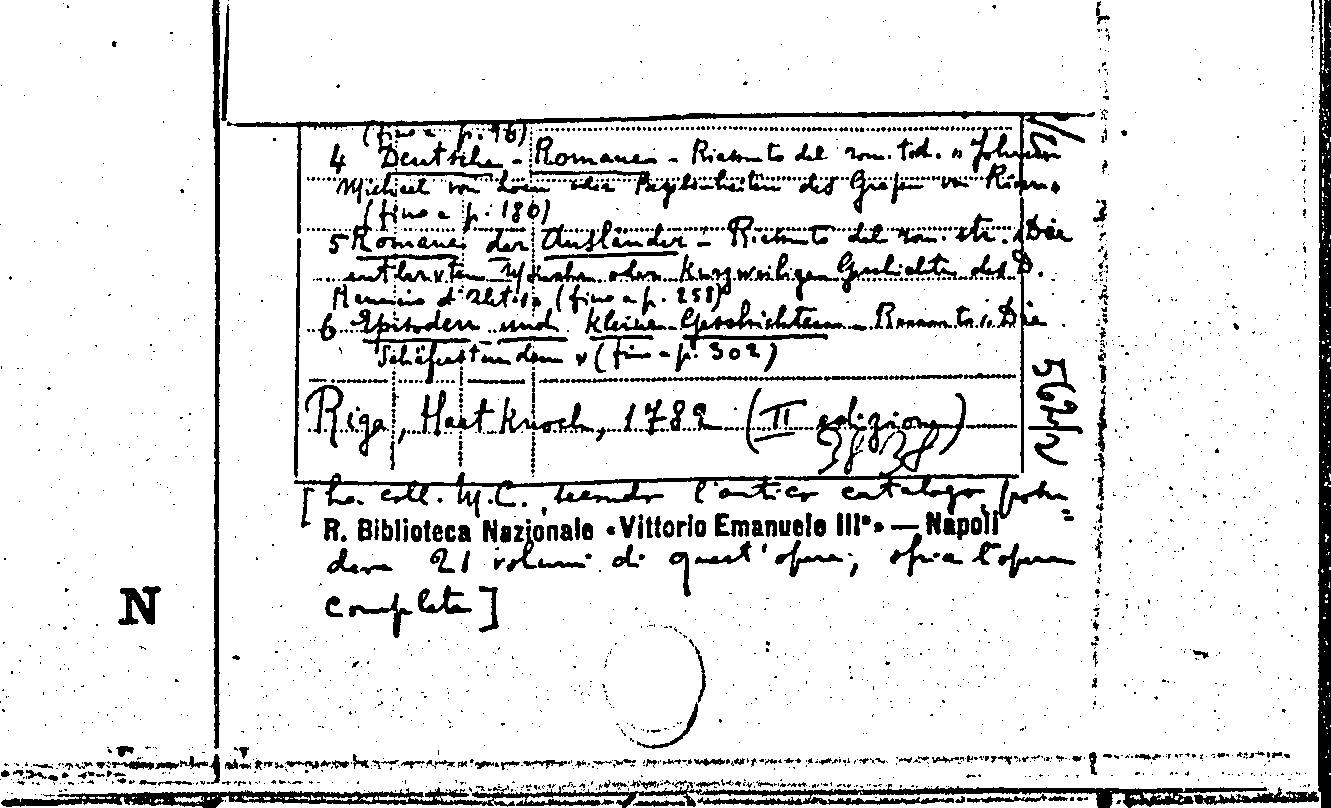 (fino a p. 96)
4 Deutsche-Romane - Riassunto del rom. ted. "Johann
Michael von Loen oder Begebenheiten des Grafen von Rivera"
(fino a p. 180)
5 Romane der Ausländer - Riassunto del rom. str. "Die
entlarvten oder kurzweiligen Geschichte des D.
(fino a p. 258)
6 Episoden und kleine Geschichten - Riassunto "Die
Schäferstunden" (fino a p. 302)
Riga, Hartknoch, 1782 (II edizione)
38 38
[La coll. M.C., secondo l'antico catalogo,
R. Biblioteca Nazionale «Vittorio Emanuele IIIº» — Napoli
21 volumi di quest'opera; l'opera
completa]
N